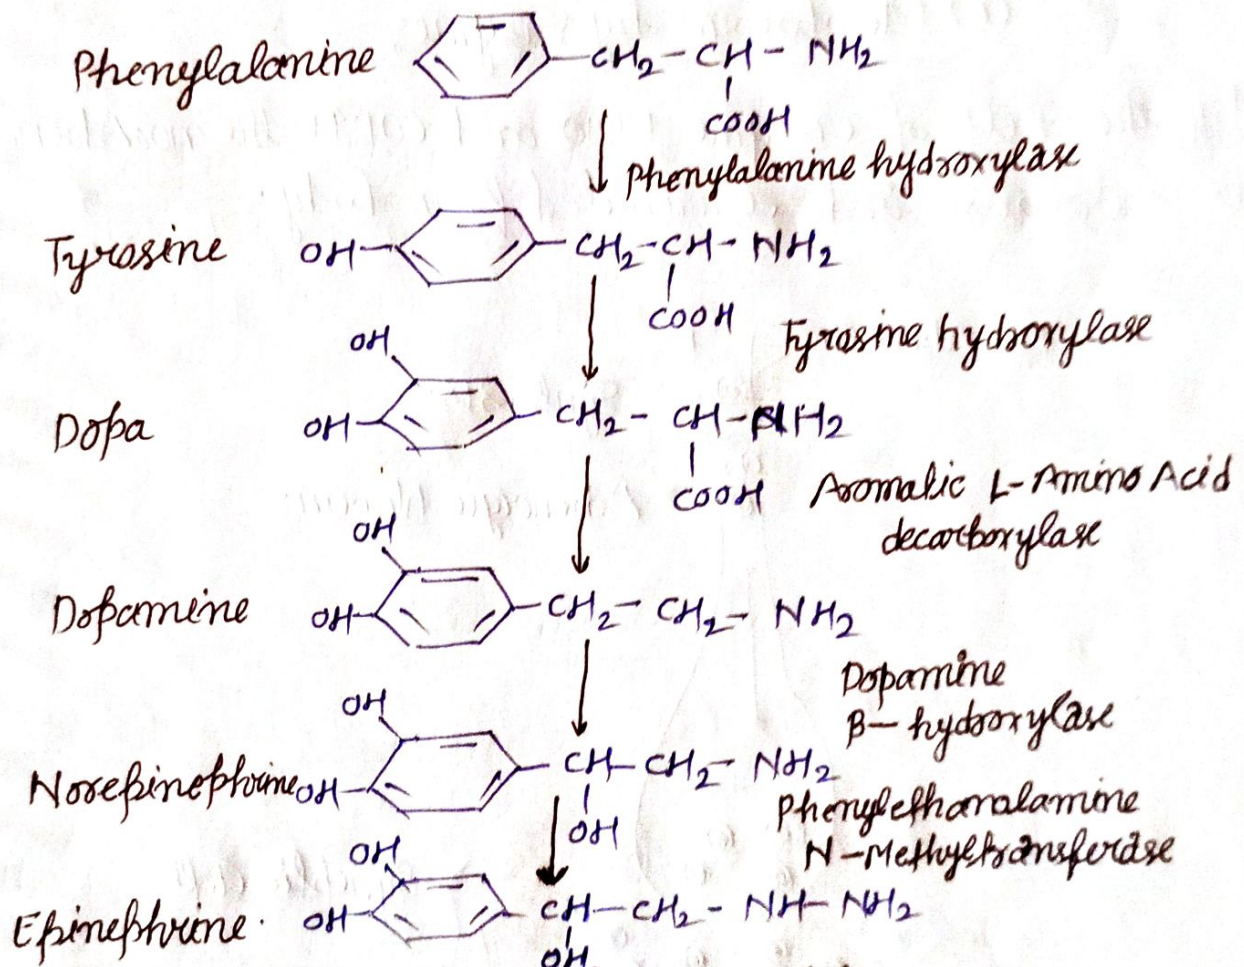 Phenylalanine CH2-CH-NH2
COOH
Phenylalanine hydroxylase
Tyrosine OH- CH2-CH-NH2
COOH
Tyrosine hydroxylase
OH
Dopa OH- CH2-CH-NH2
COOH
Aromatic L-Amino Acid
decarboxylase
OH
Dopamine OH- CH2-CH2-NH2
Dopamine
β-hydroxylase
OH
Norepinephrine OH- CH-CH2-NH2
OH
Phenylethanalamine
N-Methyltransferase
OH
Epinephrine. OH- CH-CH2-NH-NH2
OH